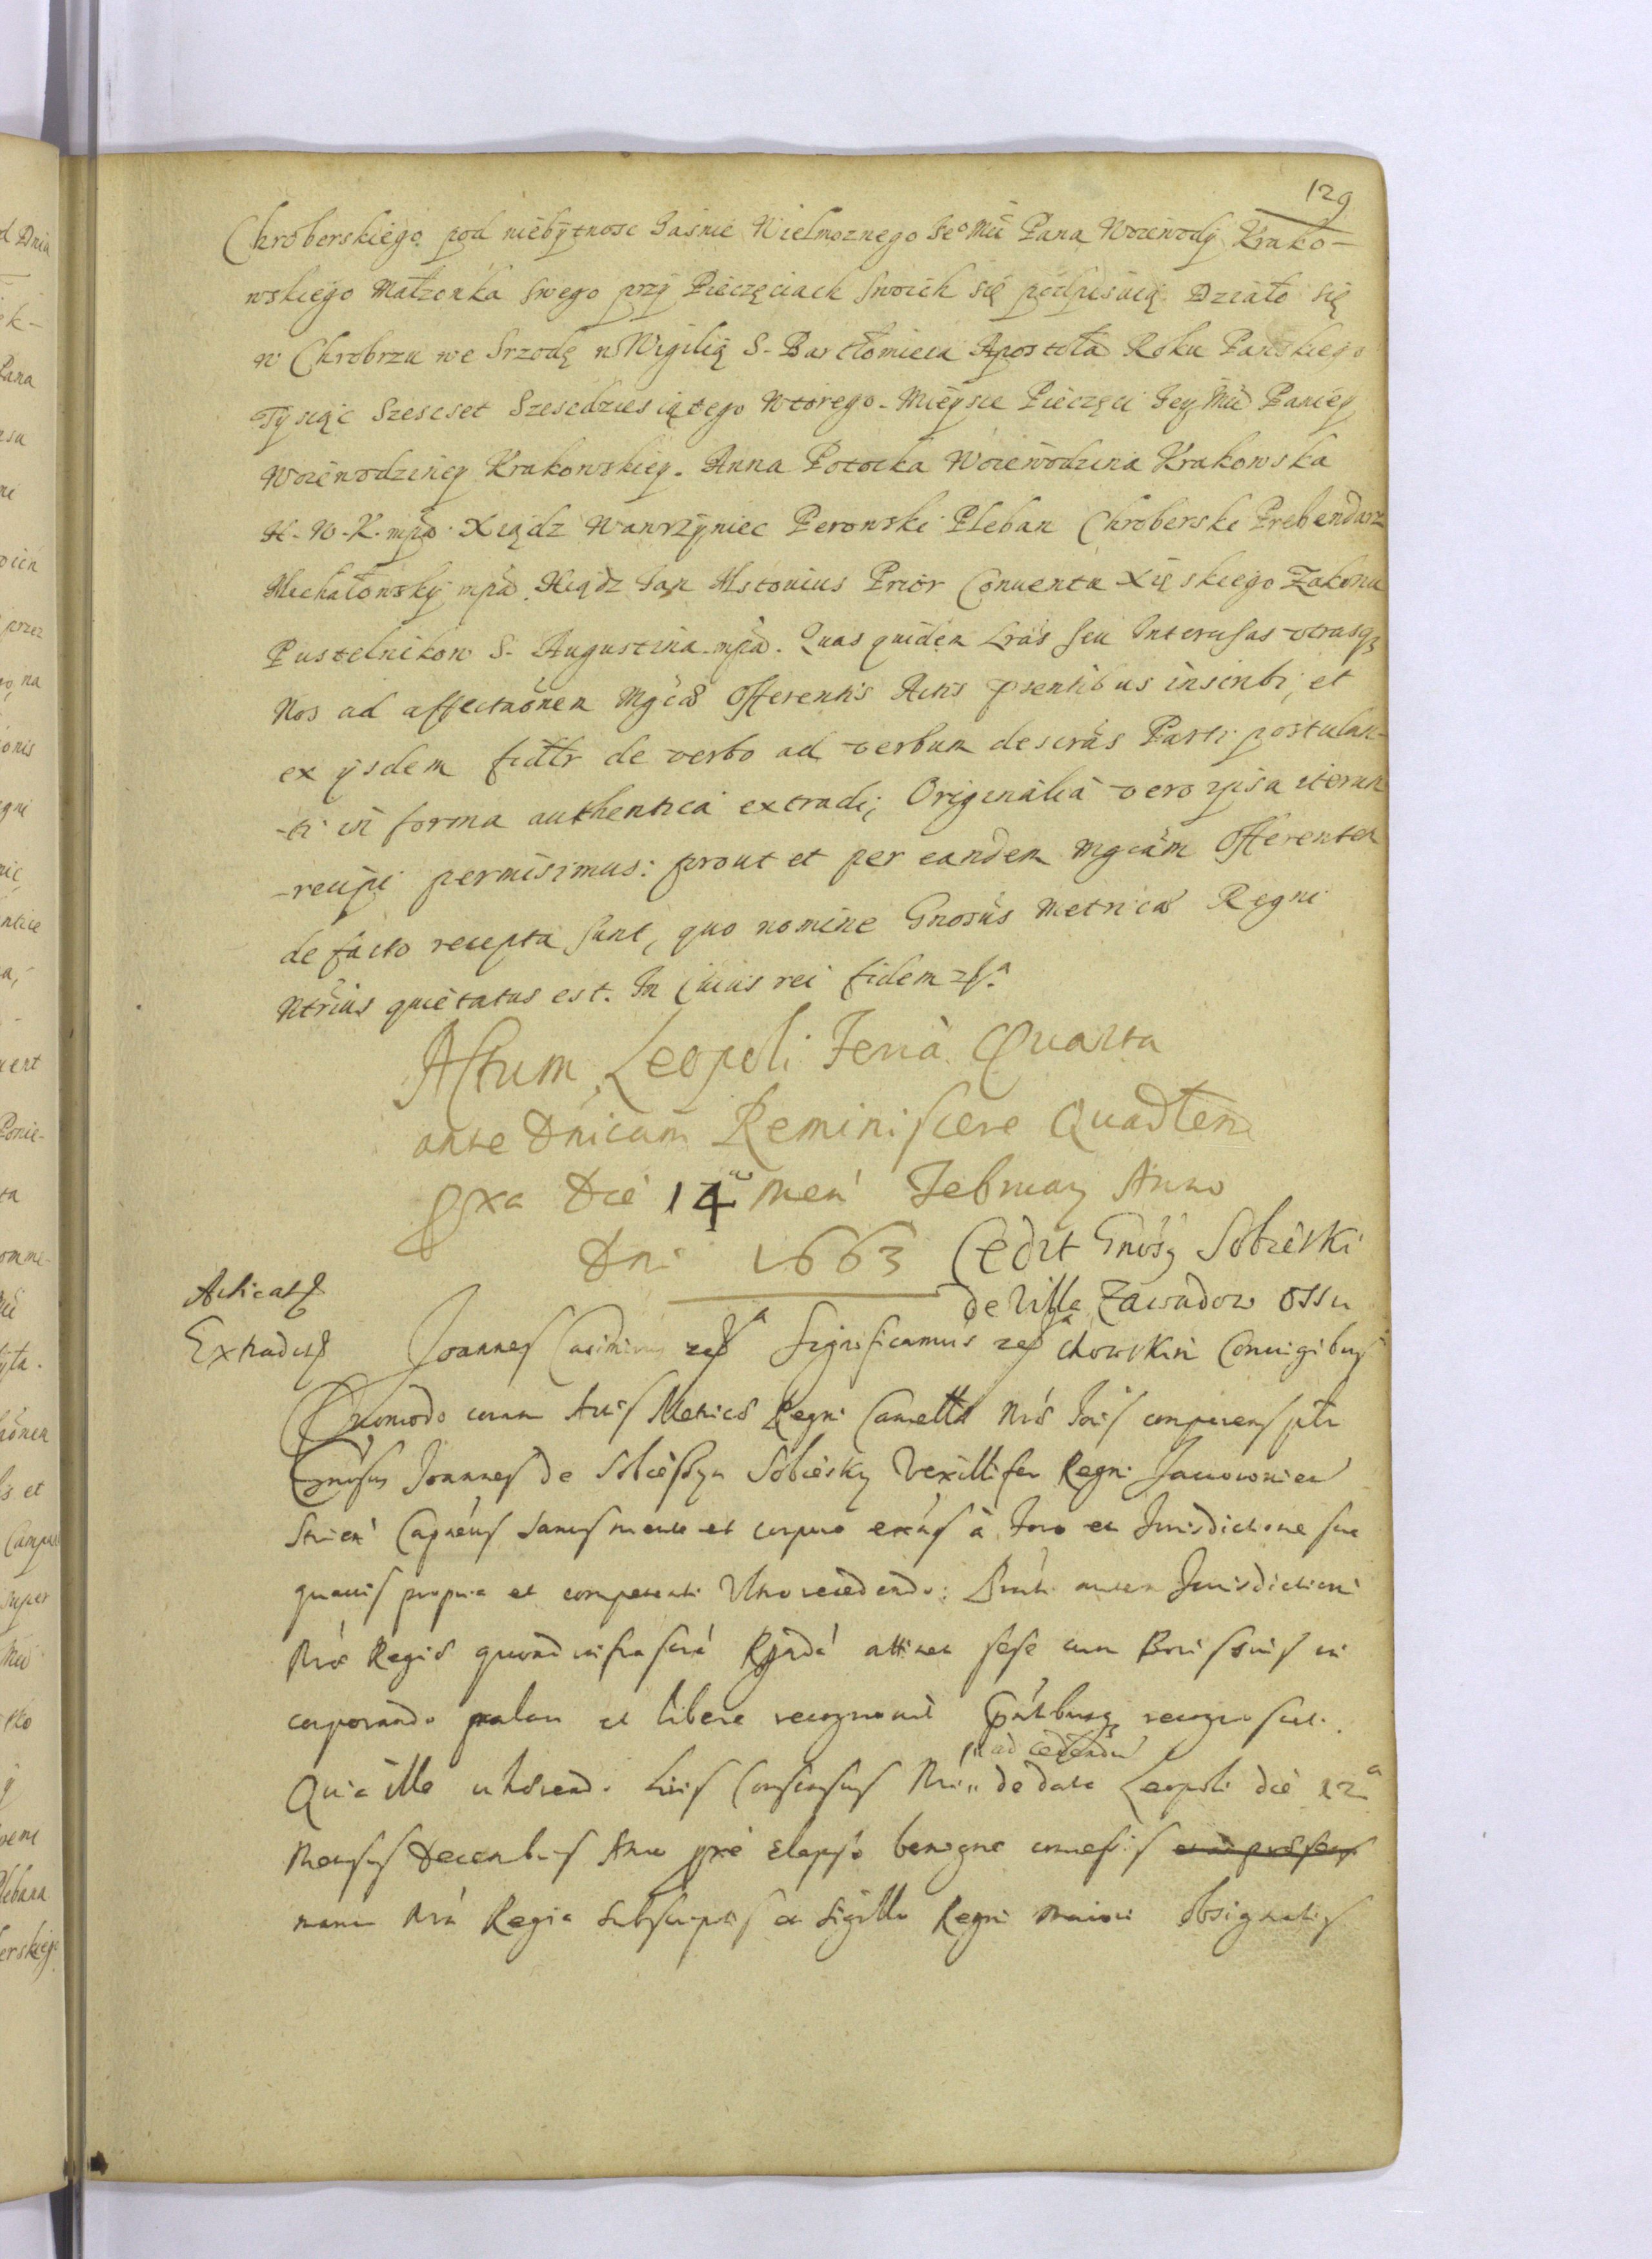 129
Chroberskiego pod niebytnosc Jasnie Wielmoznego Jeo Mći Pana Woiewody Krako-
wskiego Małzonka swego przy Pieczęciach swoich się podpisuią. Działo się
w Chrobrzu we Srzodę w Wigilią S. Bartłomieia Apostoła Roku Pańskiego
Tysiąc Szescset Szescdziesiątego Wtorego. Mieysce Pieczęci Jey Mći Paniey
Woiewodziney Krakowskiey. Anna Potocka Woiewodzina Krakowska
H. W. K. mpa. Xiądz Wawrzyniec Perowski Pleban Chroberski Prebendarz
Michałowsky mpa. Xiądz Jan Ustonius Prior Conuentu Xięskiego Zakonu
Pustelnikow S. Augustina mpa. Quas quidem Lras seu Intercisas utrasq3
Nos ad affectaonem Mgcae Offerentis Actis pntibus inscribi, et
ex ijsdem fidltr de verbo ad verbum descrās Parti postulan-
-ti in forma authentica extradi; Originalia vero ipsa iterum
-recipi permisimus: prout et per eandem Mgcam Offerentem
de facto recepta sunt, quo nomine Gnosus Metricae Regni
Ntrius quietatus est. In cuius rei fidem
Actum Leopoli Feria Quarta
ante Dnicam Reminiscere Quadlem
Die 14 Men Februarij Anno
Dni 1663 Cedit Gnosy Sobieski
de Villa Zawadow Ossu
Acticat
Extradit Joannes Casimirus Significamus chowskim Coniugibus
Quomodo coram Actis Metricae Regni Cancellae Nrae Joannes comparens pltr
Gnosus Joannes de Sobieszyn Sobiesky Vexillifer Regni Jaworonien
Strien Capneus sanus mente et corpore exns à Foro et Jurisdictione sua
quauis propria et competenti Vltro recedendo: Pnti autem Jurisdictioni
Nrae Regiae quoad infrascra attinet sese cum Bonis suis in
corporando palam et libere recognouit pntibusq3 recognoscit.
ad cedendū
Quia ille inhaerendo Consensus Nri de data Leopoli die 12a
Mensis Decembris Anno pxe elapso benigne concessis
manu Nra Regia subscriptis et Sigillo Regni maiori obsignatis